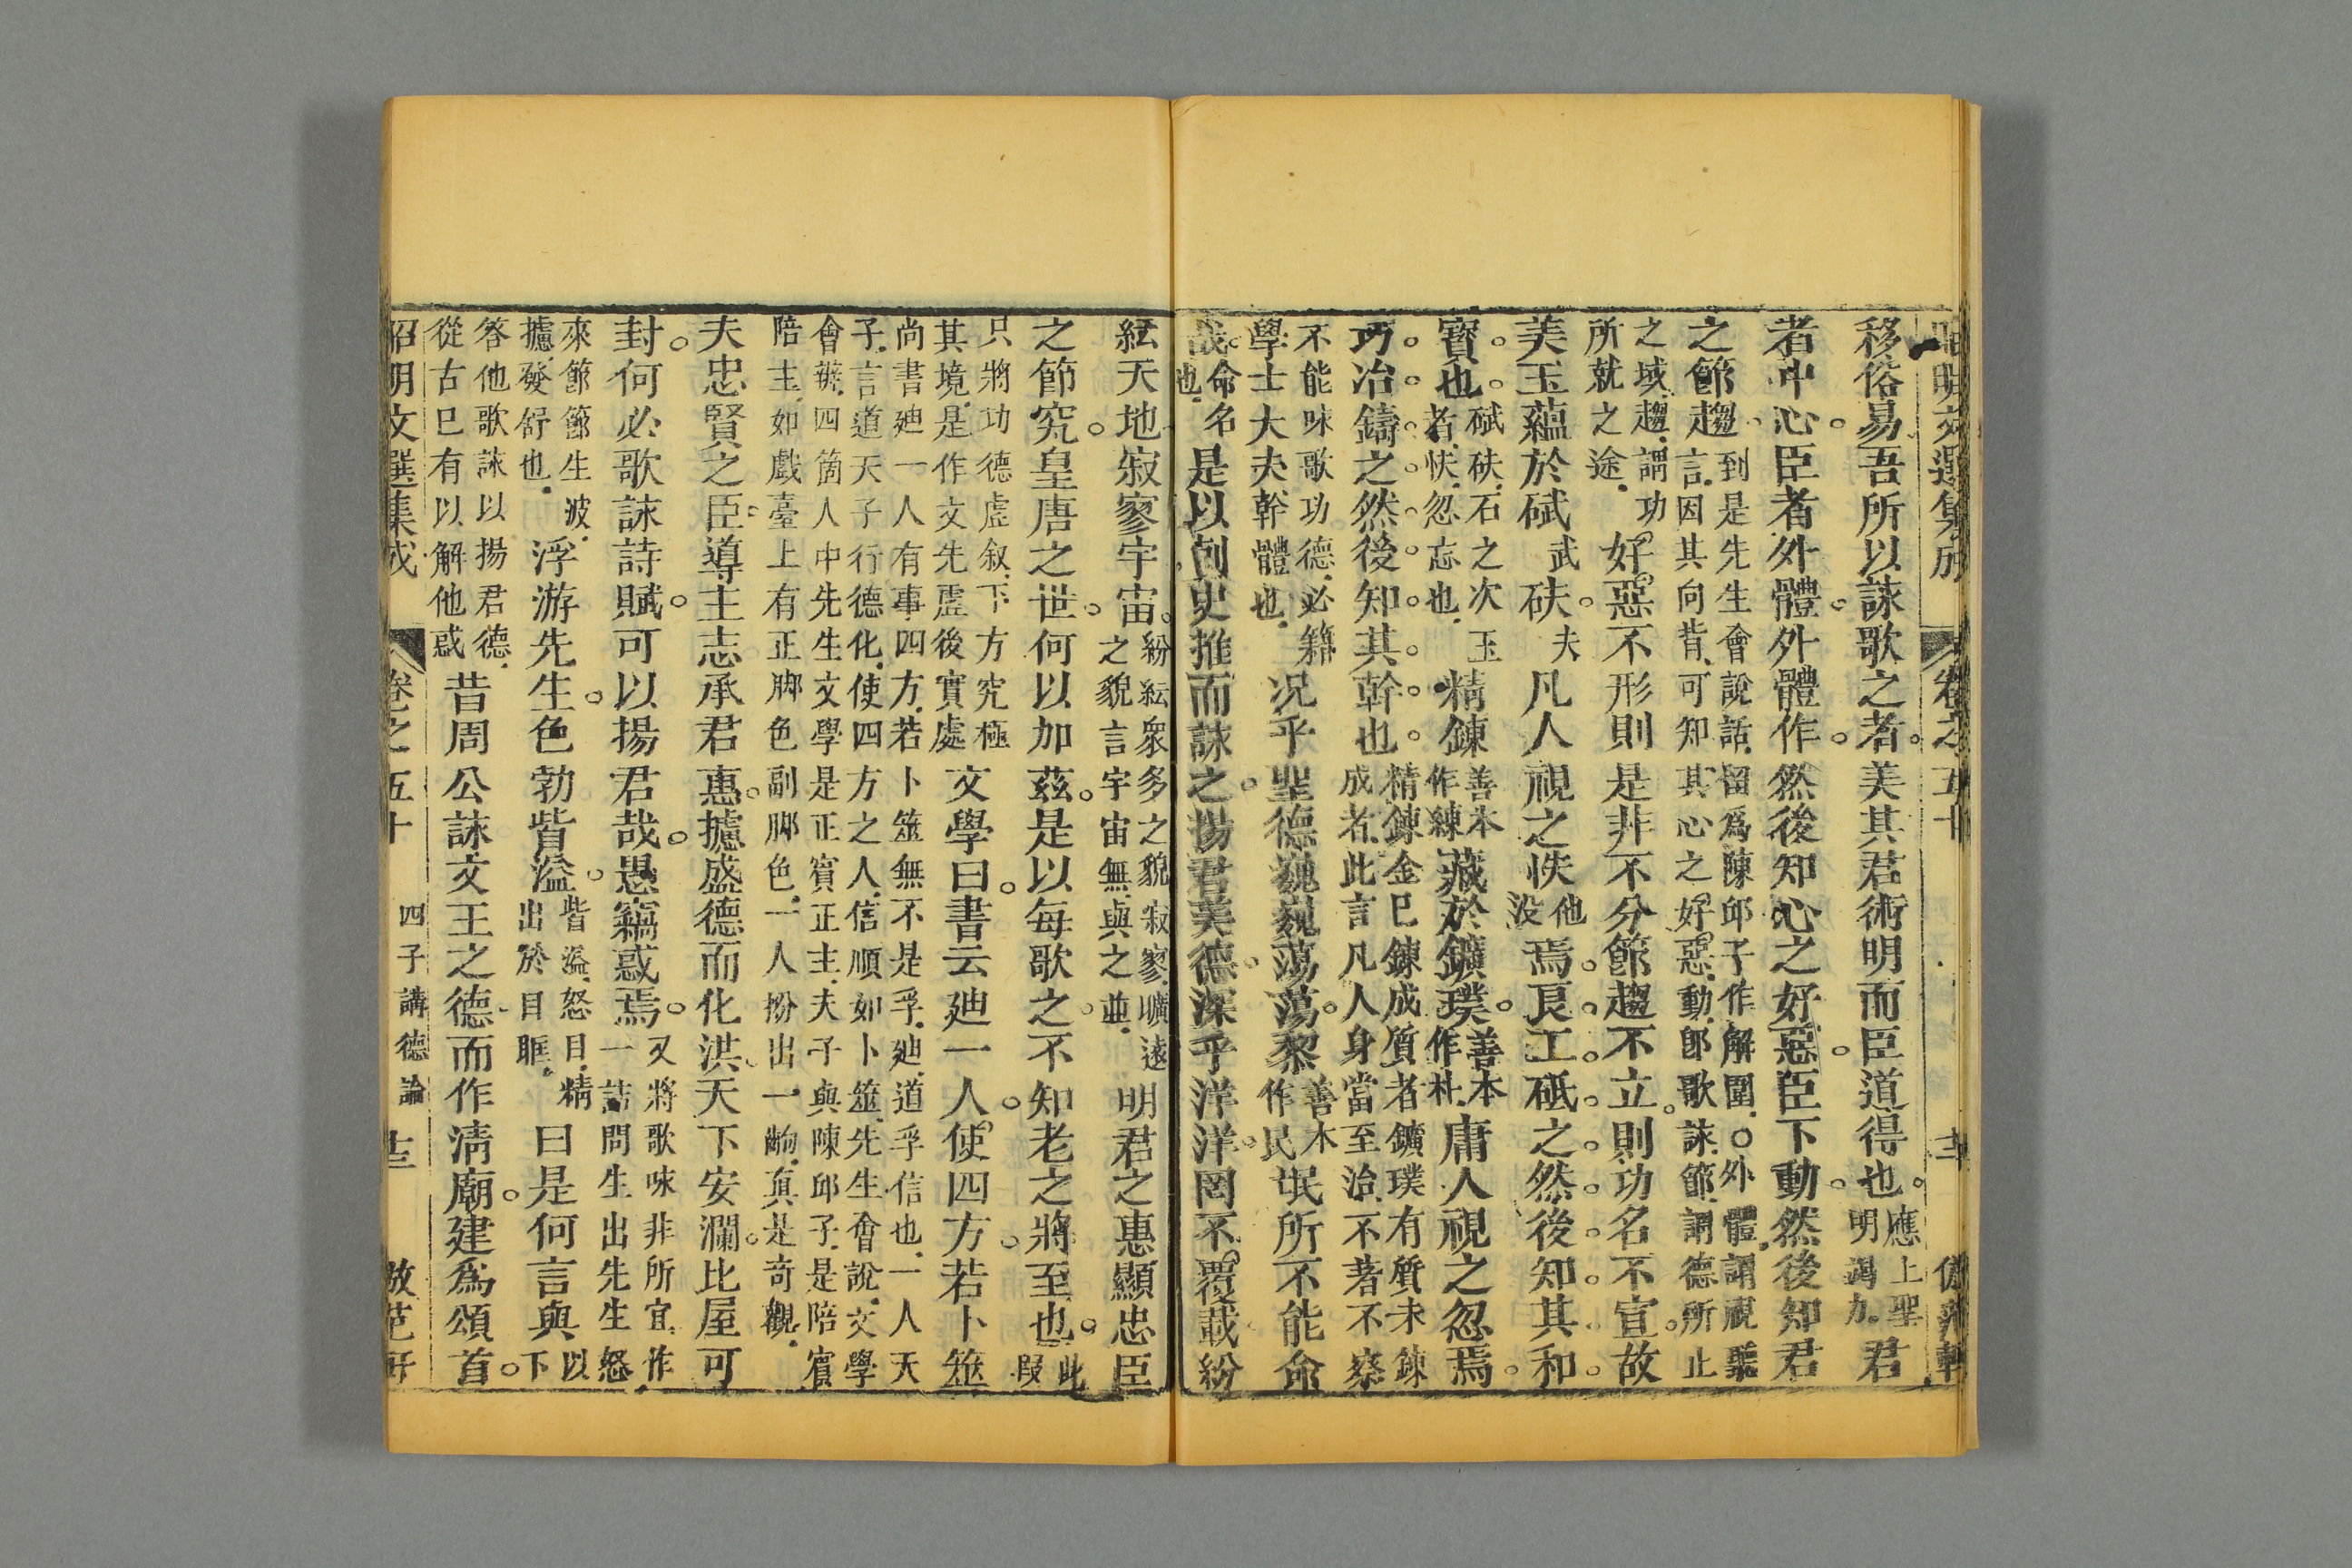 昭明文選集成 卷之五十 十二
移俗易吾所以詠歌之者美其君術明而臣道得也應上聖明竭力君
者中心臣者外體外體作然後知心之好惡臣下動然後知君
之節趨到是先生會說話留爲陳邱子作解圍○外體謂視聽言因其向背可知其心之好惡動卽歌詠節謂德所止
之域趨謂功所就之途好惡不形則是非不分節趨不立則功名不宣故
美玉蘊於碔武砆夫凡人視之怢他没焉良工砥之然後知其和
寶也碔砆石之次玉者怢忽忘也精鍊善本作練藏於鑛璞善本作朴庸人視之忽焉
巧冶鑄之然後知其幹也精鍊金已鍊成質者鑛璞有質未鍊成者此言凡人身當至治不著不察
不能味歌功德必籍學士大夫幹體也況乎聖德巍巍蕩蕩黎善本作民氓所不能命
哉命名也是以刺史推而詠之揚君美德深乎洋洋罔不覆載紛
紜天地寂寥宇宙紛紜衆多之貌寂寥曠遠之貌言宇宙無與之並明君之惠顯忠臣
之節究皇唐之世何以加茲是以每歌之不知老之將至也此段
只將功德虛叙下方究極其境是作文先虛後實處文學曰書云廸一人使四方若卜筮
尚書廸一人有事四方若卜筮無不是孚廸道孚信也一人天子言道天子行德化使四方之人信順如卜筮先生會說文學
會辨四箇人中先生文學是正賓正主夫子與陳邱子是陪賓陪主如戲臺上有正脚色副脚色一人扮出一齣眞是奇觀
夫忠賢之臣導主志承君惠攄盛德而化洪天下安瀾比屋可
封何必歌詠詩賦可以揚君哉愚竊惑焉又將歌味非所宜作一詰問生出先生怒
來節節生波攄發舒也浮游先生色勃眥溢眥溢怒目精出於目眶曰是何言與以下
答他歌詠以揚君德從古已有以解他惑昔周公詠文王之德而作淸廟建爲頌首
昭明文選集成 卷之五十 四子講德論 十三 倣范軒